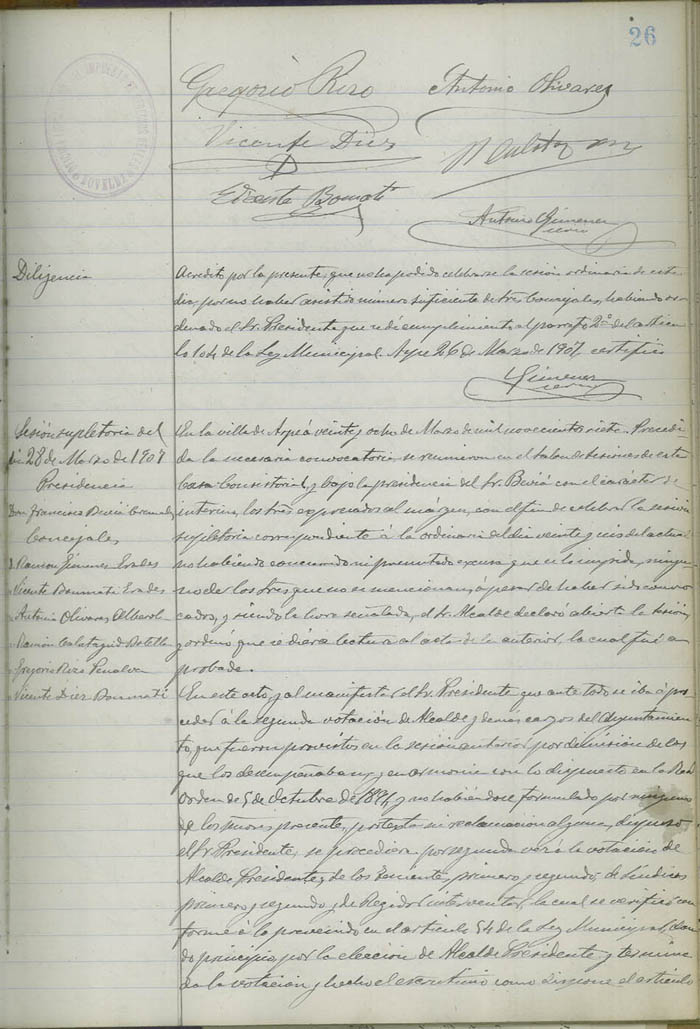 26
Gregorio Rizo
Antonio Olivares
Vicente Diez
Vicente Bonmati
Arturo Gimenez
Diligencia
Acredito por la presente, que no ha podido celebrarse la sesión ordinaria de este
dia, por no haber asistido número suficiente de Sres Concejales, habiendo or-
denado el Sr. Presidente que se dé cumplimiento al parrafo 2º del articu-
lo 104 de la Ley Municipal. Aspe 26 de Marzo de 1907, certifico
Gimenez
Sesión supletoria del
dia 28 de Marzo de 1907
Presidencia
Don Francisco
Concejales
D. Ramon Gimenez Erades
" Vicente Bonmati Erades
" Antonio Olivares Alberola
" Ramón Calatayud Botella
" Gregorio Rizo Penalva
" Vicente Diez Bonmati
En la villa de Aspe á veinte y ocho de Marzo de mil novecientos siete. Precedi-
da la necesaria convocatoria, se reunieron en el salon de sesiones de esta
Casa Consistorial, y bajo la presidencia del Sr. con el carácter de
interino, los Sres expresados al márgen, con el fin de celebrar la sesión
supletoria correspondiente á la ordinaria del dia veinte y seis del actual
no habiendo concurrido ni presentado excusa que se lo impida, ningu-
no de los Sres que no se mencionan, á pesar de haber sido convo-
cados, y siendo la hora señalada, el Sr. Alcalde declaró abierta la sesión,
y ordenó que se diera lectura al acta de la anterior, la cual fué a-
probada.
En este acto, y al manifestar el Sr. Presidente que ante todo se iba á pro-
ceder á la segunda votación de Alcalde y demás cargos del Ayuntamien-
to, que fueron provistos en la sesion anterior por dimisión de los
que los desempeñaban, y en armonia con lo dispuesto en la Real
Orden de 5 de Octubre de 1894, y no habiéndose formulado por ninguno
de los señores presentes, protesta ni reclamacion alguna, dispuso
el Sr. Presidente, se procediera por segunda vez á la votación de
Alcalde Presidente, de los Tenientes primero y segundo, de Síndicos
primero y segundo y de Regidor interventor, la cual se verificó con-
forme á lo prevenido en el articulo 54 de la Ley Municipal, dan-
do principio por la eleccion de Alcalde Presidente, y termina-
da la votación y hecho el escrutinio como dispone el articulo